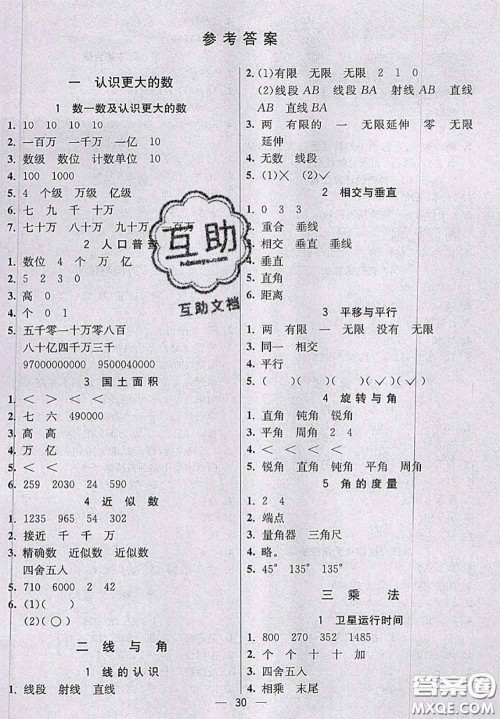 参考答案
一 认识更大的数
1 数一数及认识更大的数
1. 10 10 10 10
2. 一百万 一千万 一亿 10
3. 数级 数位 计数单位
4. 100 1000
5. 4 个级 万级 亿级
6. 七 九 千 十万
7. 七十万 八十万 九十万 一百万
2 人口普查
1. 数位 4 个 万 亿
2. 5 2 3 0
3. 高 0
4. 个 0 1
5. 五千零一十万零八百
八十亿四千万三千
97000000000 9500040000
3 国土面积
1. < > < <
2. 七 六 490000
3. 高 高
4. 万 亿
5. < <
6. 259 2030 24 590
4 近似数
1. 1235 965 54 52
2. 接近 千 千 万
3. 精确数 近似数 近似数
4. 四舍五入
5. 710 6000 2 42
6. (1)( ) ( )
(2)(○)( )
二 线与角
1 线的认识
1. 线段 射线 直线
2. (1)有限 无限 无限 2 1 0
(2)线段AB 线段BA 射线AB 直线
AB 直线BA
3. 两 有限的 一 无限延伸 零 无限
延伸
4. 无数 线段
5. (1)× (2)√
2 相交与垂直
1. 0 3 3
2. 重合 垂线
3. 相交 垂直 垂线 垂线
4. 垂直
5. 直角
6. 距离
3 平移与平行
2. 两 有限 一 无限 没有 无限
3. 同一 相交
4. 平行
5. ( ) ( ) ( ) (√) (√)
4 旋转与角
1. 直角 钝角 锐角
3. 平角 周角 2 4
4. < < < <
5. 锐角 直角 钝角 平角 周角
5 角的度量
1. 2 4
2. 端点
3. 量角器 三角尺
4. 略。
5. 45° 135° 135°
三 乘法
1 卫星运行时间
1. 800 270 352 1485
2. 个 个 十 十 加
3. 四舍五入
4. 相乘 末尾
30
互助
hdzuoye.com
互助文档
答案圈
MXQE.COM